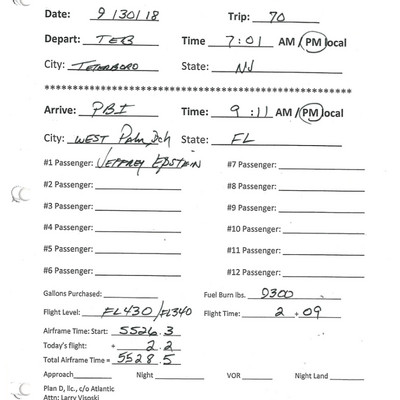 Date: 9/30/18 Trip: 70
Depart: TEB Time 7:01 AM / PM local
City: TETERBORO State: NJ
******************************************************
Arrive: PBI Time: 9:11 AM / PM local
City: WEST Palm Bch State: FL
#1 Passenger: JEFFREY EPSTEIN #7 Passenger:
#2 Passenger: #8 Passenger:
#3 Passenger: #9 Passenger:
#4 Passenger: #10 Passenger:
#5 Passenger: #11 Passenger:
#6 Passenger: #12 Passenger:
Gallons Purchased: Fuel Burn lbs. 9300
Flight Level: FL430/FL340 Flight Time: 2 + 09
Airframe Time: Start: 5526.3
Today's flight: + 2.2
Total Airframe Time = 5528.5
Approach Night VOR Night Land
Plan D, llc., c/o Atlantic
Attn: Larry Visoski